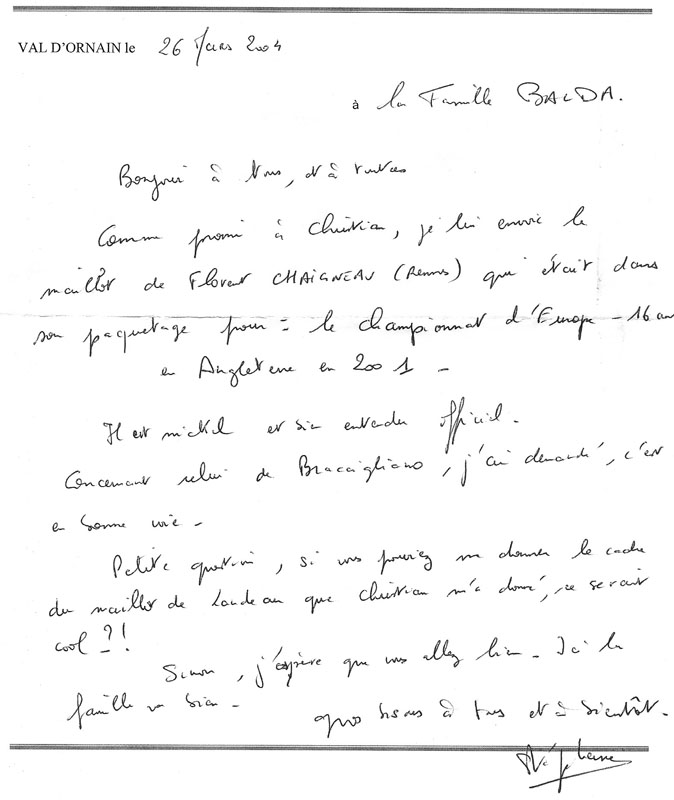 VAL D'ORNAIN le 26 Mars 2004
à la Famille BALDA.
Bonjour à tous, et à toutes
Comme promi à Christian, je lui envoie le
maillot de Florent CHAIGNEAU (Rennes) qui était dans
son paquetage pour = le championnat d'Europe - 16 ans
en Angleterre en 2001 -
Il est nickel et bien entendu officiel.
Concernant celui de Bracigliano, j'ai demandé, c'est
en bonne voie -
Petite question, si vous pouviez me donner le cadre
du maillot de Landeau que Christian m'a donné, ce serait
cool ?!
Sinon, j'espère que vous allez bien - Ici la
famille va bien -
gros bisous à tous et à bientôt.
Stéphane